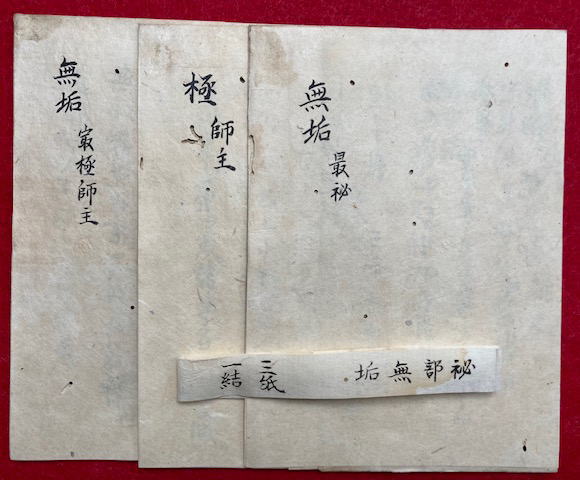 無垢
最祕
極
師主
無垢
㝡極師主
祕部無垢
三紙
一結